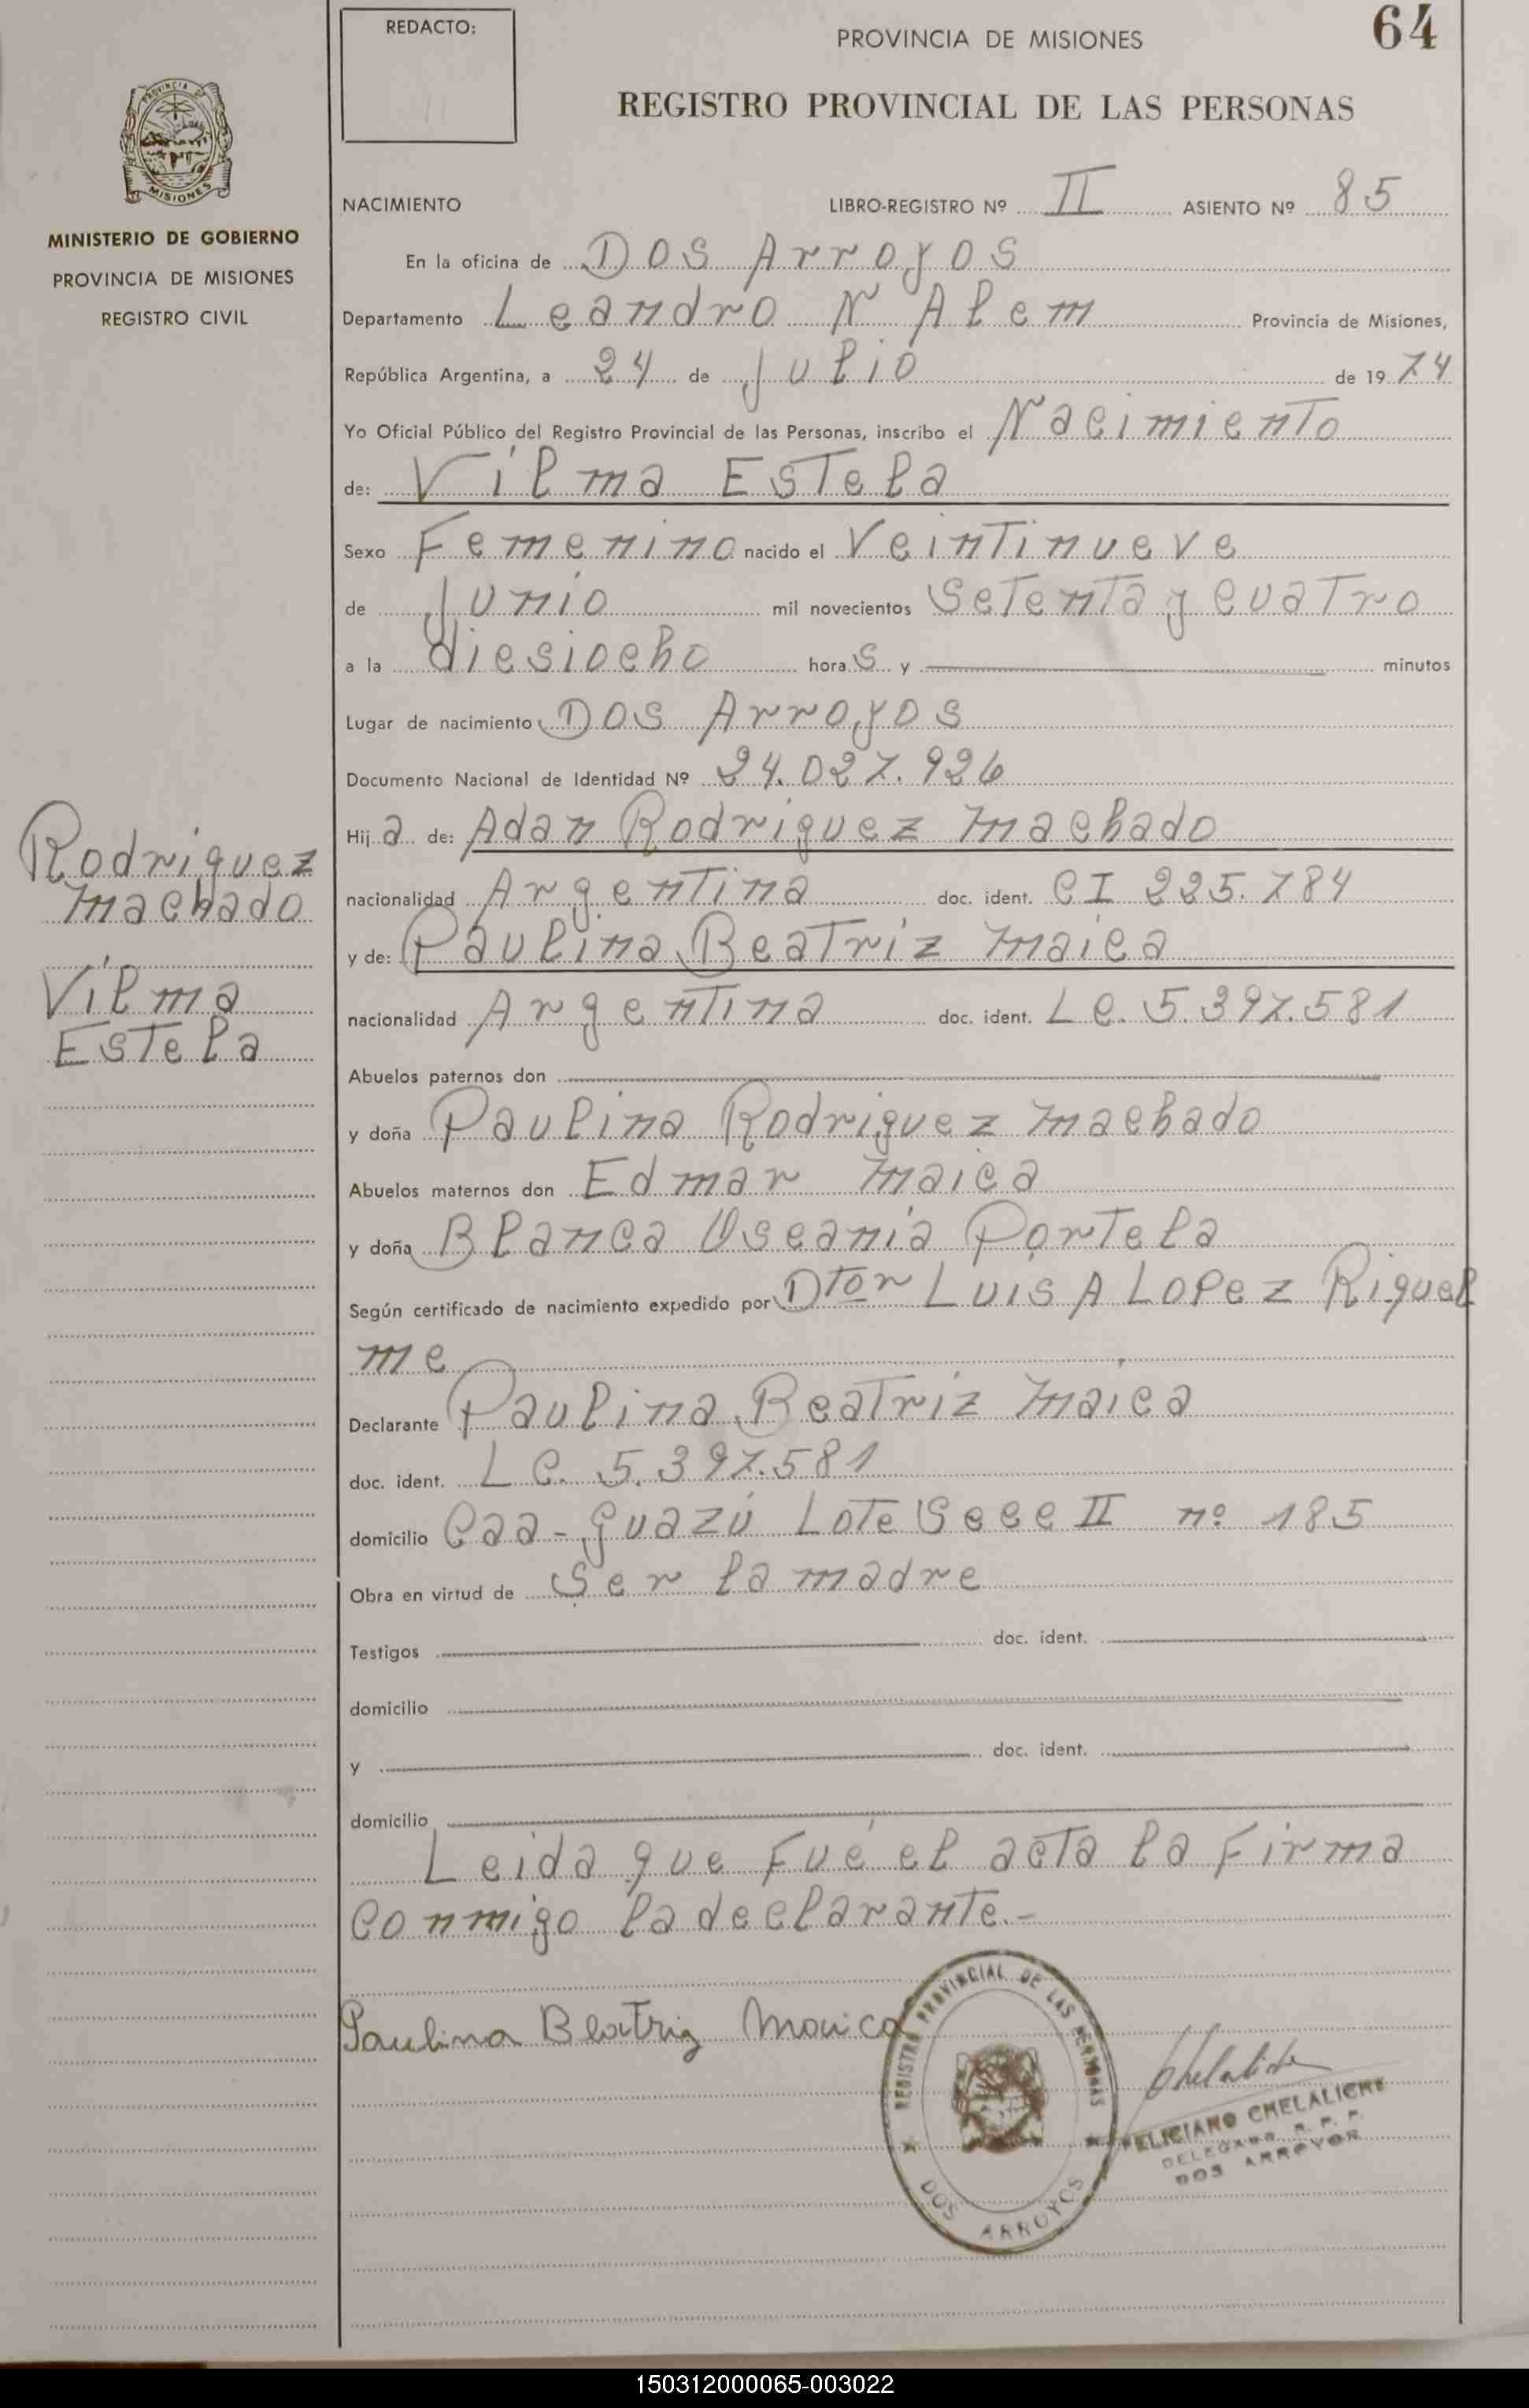 REDACTO:
PROVINCIA DE MISIONES
64
REGISTRO PROVINCIAL DE LAS PERSONAS
PROVINCIA DE
MISIONES
MINISTERIO DE GOBIERNO
PROVINCIA DE MISIONES
REGISTRO CIVIL
NACIMIENTO LIBRO-REGISTRO Nº II ASIENTO Nº 85
En la oficina de Dos Arroyos
Departamento Leandro N Alem Provincia de Misiones,
República Argentina, a 24 de Julio de 1974
Yo Oficial Público del Registro Provincial de las Personas, inscribo el Nacimiento
de: Vilma Estela
Sexo Femenino nacido el Veintinueve
de Junio mil novecientos Setenta y cuatro
a la diesiocho horas y minutos
Lugar de nacimiento Dos Arroyos
Documento Nacional de Identidad Nº 24.027.926
Hija de: Adan Rodriguez Machado
nacionalidad Argentina doc. ident. CI 225.784
y de: Paulina Beatriz Maica
nacionalidad Argentina doc. ident. Lc. 5.397.581
Abuelos paternos don
y doña Paulina Rodriguez Machado
Abuelos maternos don Edmar Maica
y doña Blanca Oseania Portela
Según certificado de nacimiento expedido por Dtor Luis A Lopez Riquel
me
Declarante Paulina Beatriz Maica
doc. ident. Lc. 5.397.581
domicilio Caa-Guazú Lote Secc II nº 185
Obra en virtud de Ser la madre
Testigos doc. ident.
domicilio
y doc. ident.
domicilio
Leida que Fué el acta la Firma
conmigo la declarante.-
Rodriguez
Machado
Vilma
Estela
Paulina Beatriz Maica
REGISTRO PROVINCIAL DE LAS PERSONAS
DOS ARROYOS
Chelaliche
FELICIANO CHELALICHE
DELEGADO R. P. P.
DOS ARROYOS
150312000065-003022